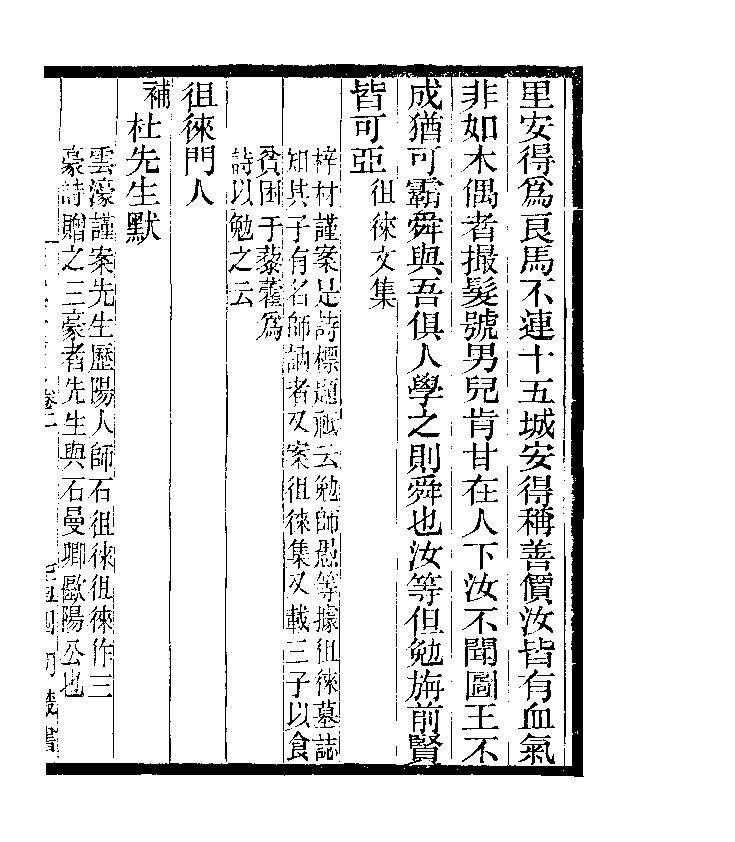 里安得爲良馬不連十五城安得稱善價汝皆有血氣
非如木偶者撮髮號男兒肯甘在人下汝不聞圖王不
成猶可霸舜與吾俱人學之則舜也汝等但勉旃前賢
皆可亞 徂徠文集
梓材謹案是詩標題祗云勉師愚等據徂徠墓誌
知其子有名師訥者又案徂徠集又載三子以食
貧困于藜藿爲
詩以勉之云
徂徠門人
補杜先生默
雲濠謹案先生歷陽人師石徂徠徂徠作三
豪詩贈之三豪者先生與石曼卿歐陽公也
卷二